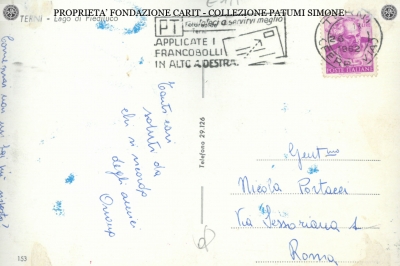 PROPRIETA' FONDAZIONE CARIT - COLLEZIONE PATUMI SIMONE
TERNI - Lago di Piediluco
PT
a servirvi meglio
APPLICATE I
FRANCOBOLLI
IN ALTO A DESTRA
1962
POSTE ITALIANE
Tanti cari
saluti da
chi si ricorda
degli amici
Come mai non mi hai più
Telefono 29.126
Gent.mo
Nicola Portacci
Via
Roma
153